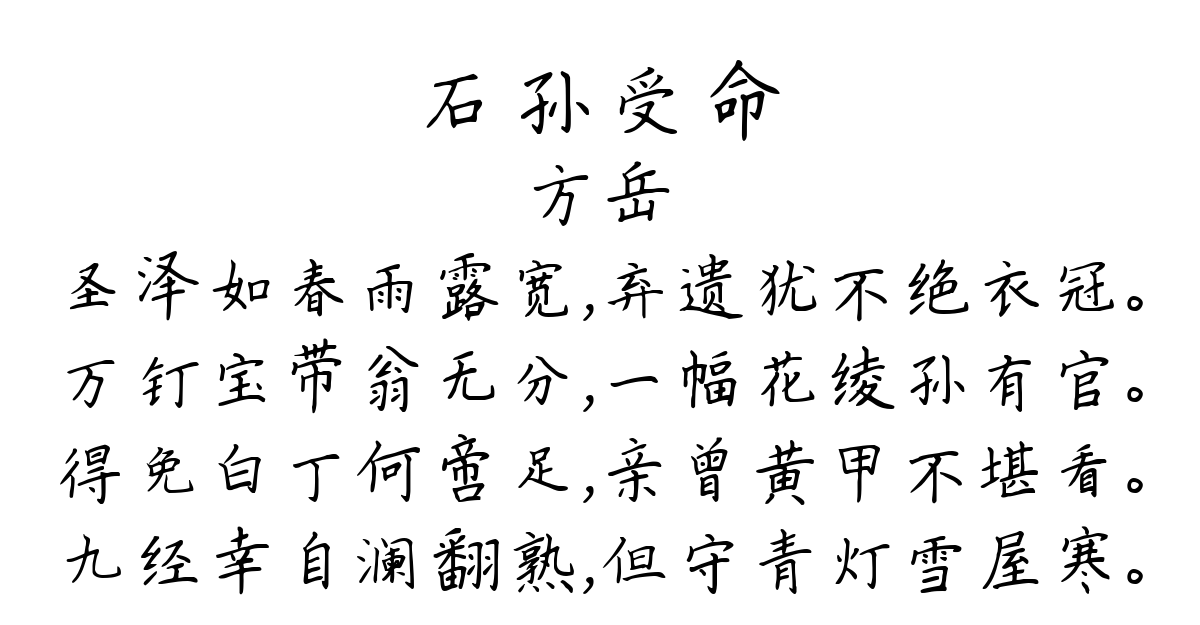 石孙受命
方岳
圣泽如春雨露宽,弃遗犹不绝衣冠。
万钉宝带翁无分,一幅花绫孙有官。
得免白丁何啻足,亲曾黄甲不堪看。
九经幸自澜翻熟,但守青灯雪屋寒。